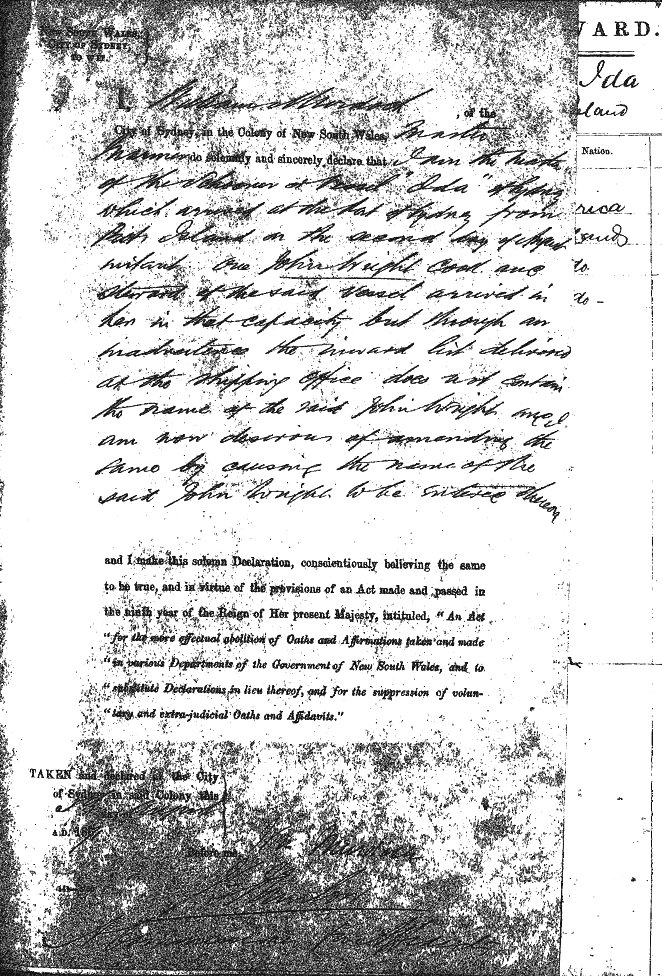 NEW SOUTH WALES,
CITY OF SYDNEY,
TO WIT.
I, William , of the
City of Sydney, in the Colony of New South Wales, Master
Mariner do solemnly and sincerely declare that I am the Master
of the Schooner or Vessel "Ida" of Sydney
which arrived at the Port of Sydney from
Island on the second day of
instant One John Wright Cook and
Steward of the said vessel arrived in
her in that capacity but through an
inadvertence the inward list delivered
at the Shipping Office does not contain
the name of the said John Wright and I
am now desirous of amending the
same by causing the name of the
said John Wright to be entered thereon
and I make this solemn Declaration, conscientiously believing the same
to be true, and in virtue of the provisions of an Act made and passed in
the ninth year of the Reign of Her present Majesty, intituled, "An Act
"for the more effectual abolition of Oaths and Affirmations taken and made
"in various Departments of the Government of New South Wales, and to
"substitute Declarations in lieu thereof, and for the suppression of volun-
"tary and extra-judicial Oaths and Affidavits."
TAKEN and declared at the City
of Sydney in said Colony this
day of
A.D. 18
Before me
WARD.
Ida
land
Nation.
rica
lands
do
do -